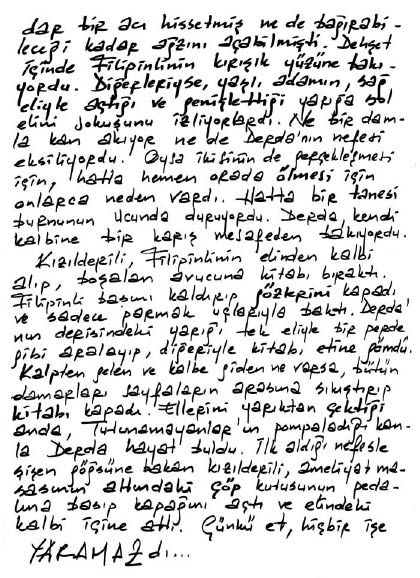 dar bir acı hissetmiş ne de bağırabi-
leceği kadar ağzını açabilmişti. Dehşet
içinde Filipinlinin kırışık yüzüne bakı-
yordu. Diğerleriyse, yaşlı adamın, sağ
eliyle açtığı ve genişlettiği yarığa sol
elini sokuşunu izliyorlardı. Ne bir dam-
la kan akıyor ne de Derda'nın nefesi
eksiliyordu. Oysa ikisinin de gerçekleşmesi
için, hatta hemen orada ölmesi için
onlarca neden vardı. Hatta bir tanesi
burnunun ucunda duruyordu. Derda, kendi
kalbine bir karış mesafeden bakıyordu.
Kızılderili, Filipinlinin elinden kalbi
alıp, boşalan avucuna kitabı bıraktı.
Filipinli başını kaldırıp gözlerini kapadı
ve sadece parmak uçlarıyla baktı. Derda'
nın derisindeki yarığı, tek eliyle bir perde
gibi aralayıp, diğeriyle kitabı, etine gömdü.
Kalpten gelen ve kalbe giden ne varsa, bütün
damarları sayfaların arasına sıkıştırıp
kitabı kapadı. Ellerini yarıktan çektiği
anda, Tutunamayanlar'ın pompaladığı kan-
la Derda hayat buldu. İlk aldığı nefesle
şişen göğsüne bakan kızılderili, ameliyat ma-
sasının altındaki çöp kutusunun peda-
lına basıp kapağını açtı ve elindeki
kalbi içine attı. Çünkü et, hiçbir işe
YARAMAZdı...